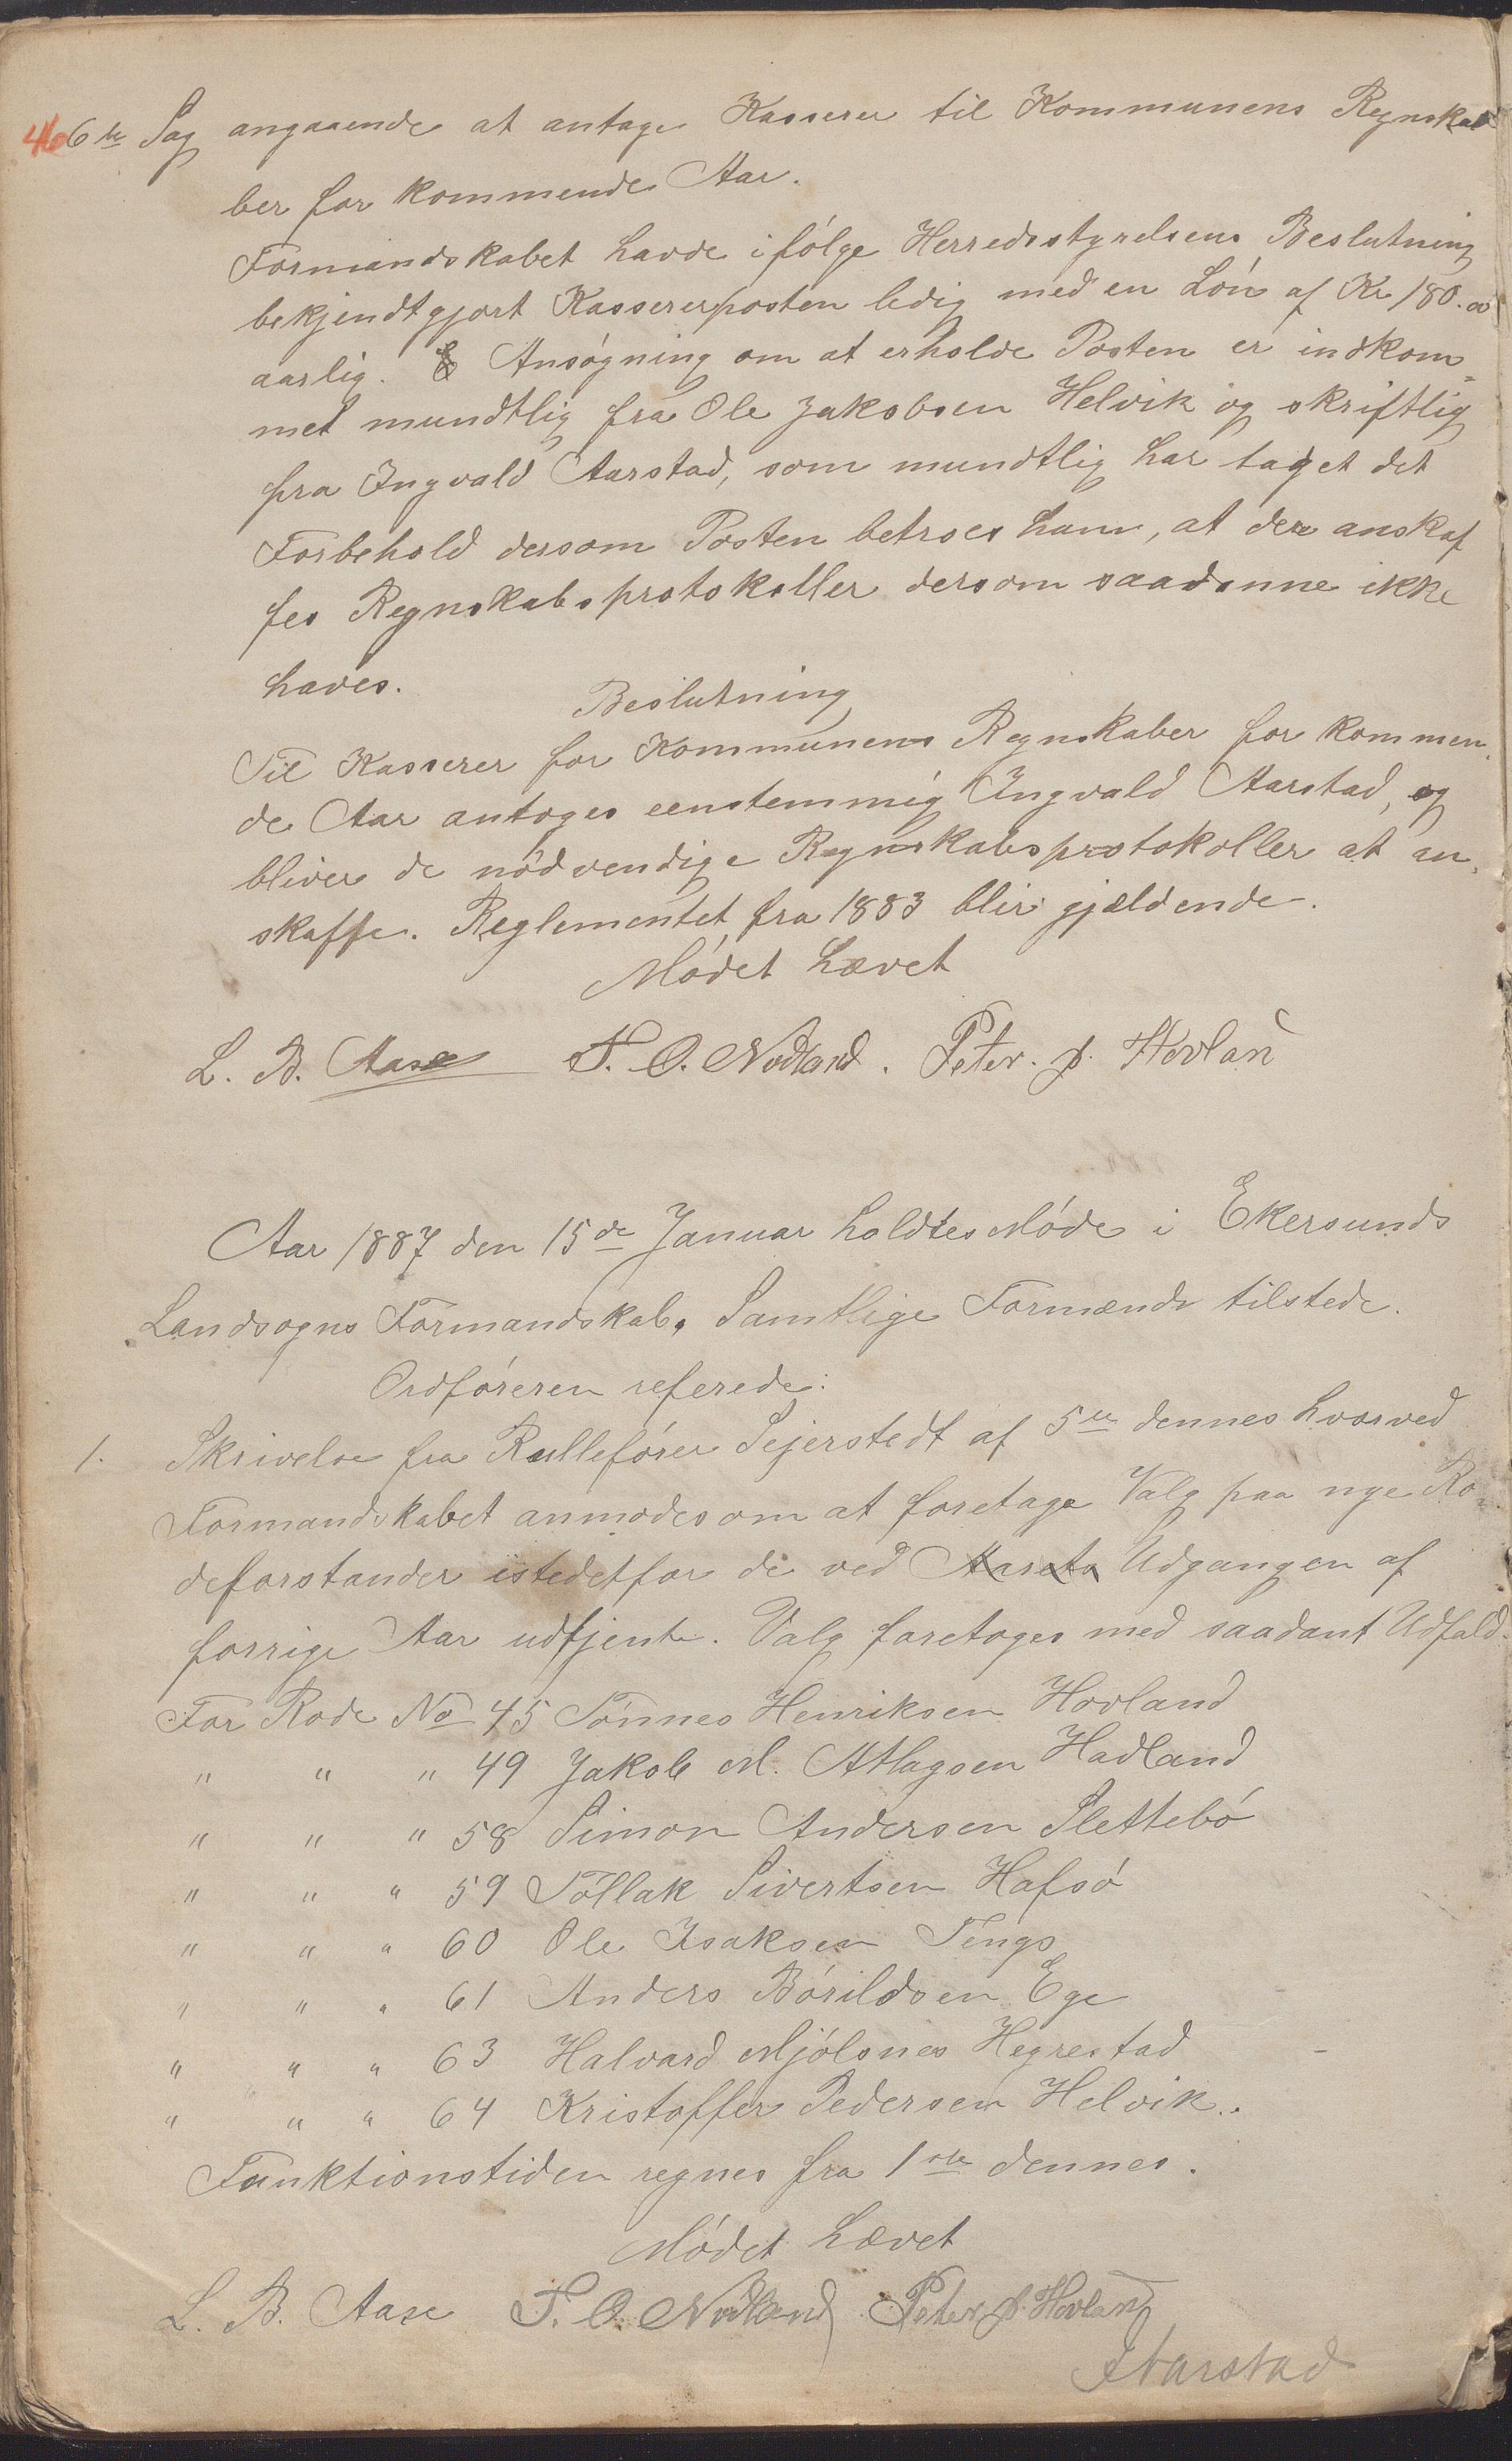 46 6te Sag angaaende at antage Kasserer til Kommunens Regnska
ber for kommende Aar.
Formandskabet havde ifølge Herredsstyrelsens Beslutning
bekjendtgjort Kassererposten ledig med en Løn af Kr 180.00
aarlig. Ansøgning om at erholde Posten er indkom=
met mundtlig fra Ole Jakobsen Helvik og skriftlig
fra Ingvald Aarstad, som mundtlig har taget det
Forbehold dersom Posten betroes ham, at der anskaf
fes Regnskabsprotokoller dersom saadanne ikke
haves.
Beslutning
Til Kasserer for Kommunens Regnskaber for kommen=
de Aar antoges eenstemmig Ingvald Aarstad, og
bliver de nødvendige Regnskabsprotokoller at an=
skaffe. Reglementet fra 1883 blir gjældende.
Mødet hævet
L. B. Aase T. O. Nodland. Peter. J. Hovland
Aar 1887 den 15de Januar holdtes Møde i Ekersunds
Landsogns Formandskab. Samtlige Formænd tilstede.
Ordføreren referede:
1. Skrivelse fra Rullefører Sejerstedt af 5te dennes hvorved
Formandskabet anmodes om at foretage Valg paa nye Ro=
deforstander istedetfor de ved Aarets Udgangen af
forrige Aar udtjente. Valg foretoges med saadant Udfald.
For Rode No 45 Tønnes Henriksen Hovland
" " " 49 Jakob M. Atlagsen Hadland
" " " 58 Simon Andersen Slettebø
" " " 59 Tollak Sivertsen Hafsø
" " " 60 Ole Isaksen Tengs
" " " 61 Anders Børildsen Ege
" " " 63 Halvard Mjølsnes Hegrestad
" " " 64 Kristoffer Pedersen Helvik.
Funktionstiden regnes fra 1ste dennes.
Mødet hævet
L. B. Aase T. O. Nodland Peter J. Hovland
I Aarstad